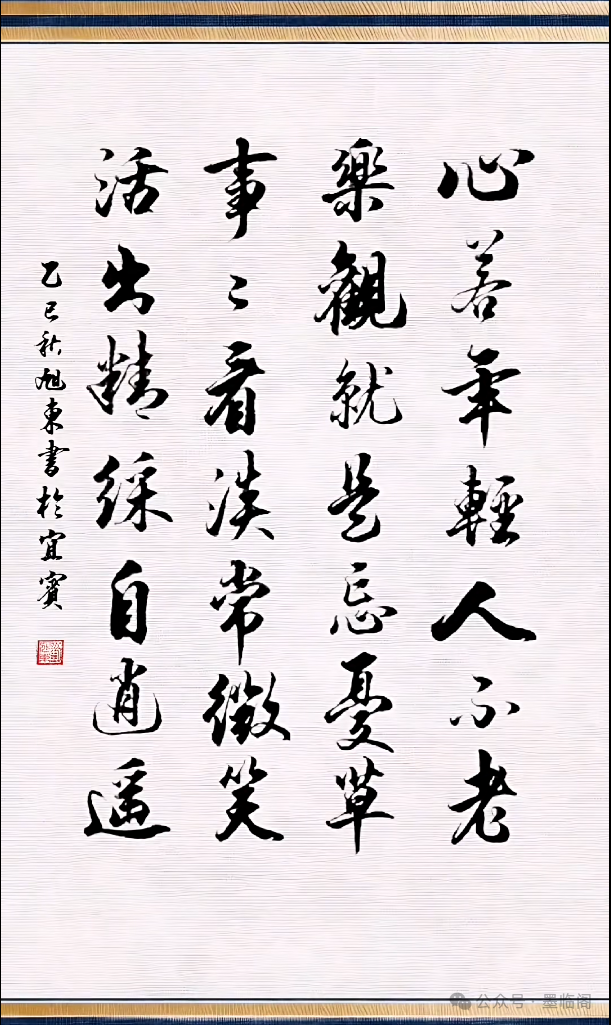 心若年輕人不老
樂觀就是忘憂草
事〻看淡常微笑
活出精綵自逍遥
乙巳秋旭東書於宜賓
公众号 · 墨临阁